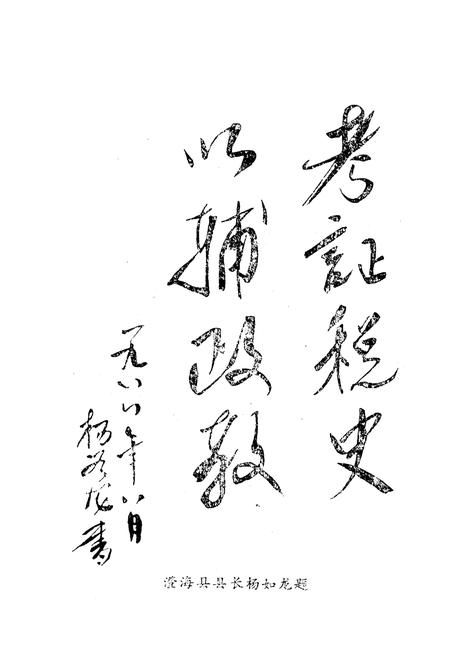 考証税史
以辅政教
一九八八年八月
杨如龙书
澄海县县长杨如龙题